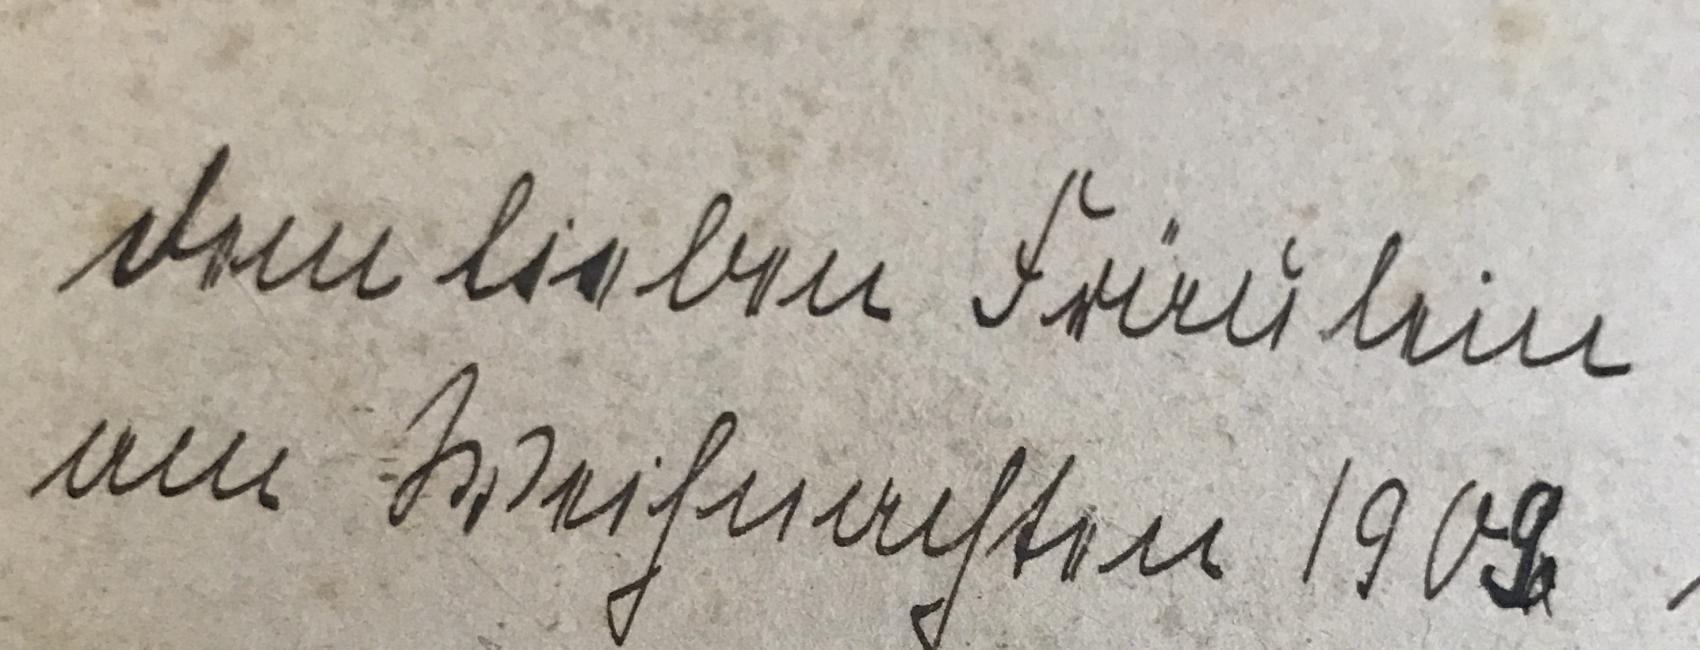 dem lieben Fräulein
am Weihnachten 1909